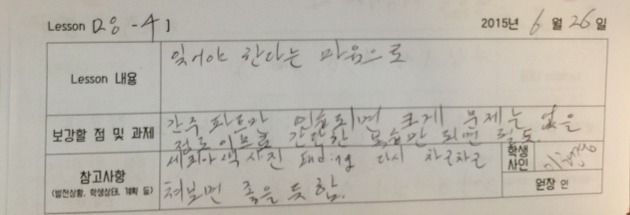 Lesson D8-4] 2015년 6월 26일
Lesson 내용
잊어야 한다는 마음으로
보강할 점 및 과제
간주 파트가 연습되면 크게 문제는 없을
정도이므로 간단한 연습만 되면 될듯
참고사항
(발전상황, 학생상태, 계획 등)
세피아색 사진 다시 차근차근
쳐보면 좋을 듯 함.
학생
사인
원장 인